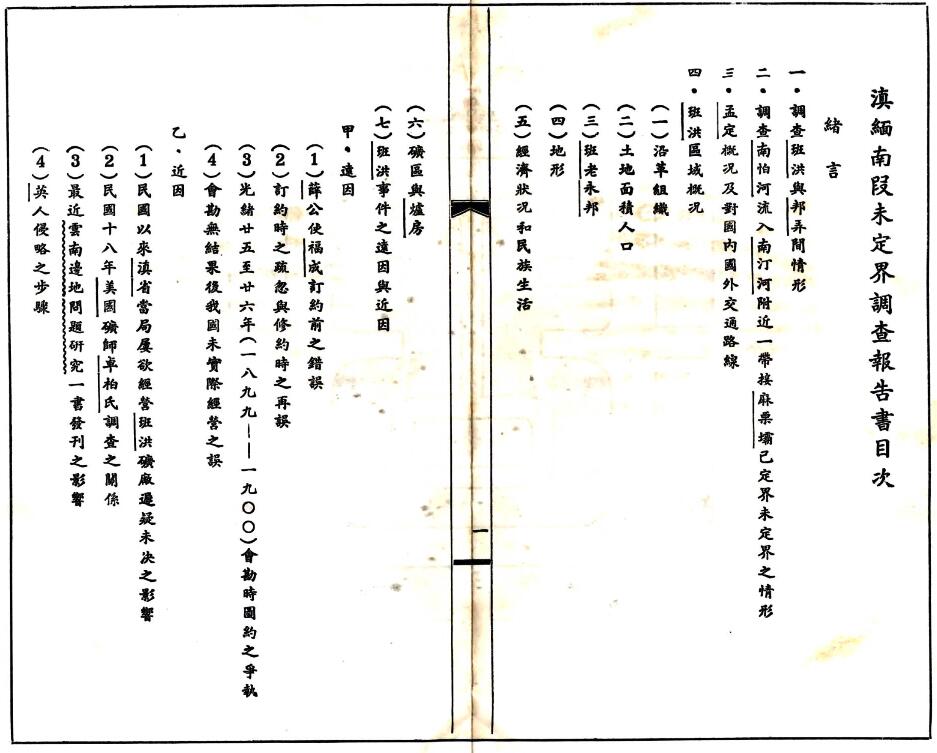 滇緬南段未定界調查報告書目次
緒言
一•調查班洪與邦弄間情形
二•調查南怕河流入南汀河附近一帶接麻栗壩已定界未定界之情形
三•孟定概況及對國內國外交通路線
四•班洪區域概況
(一)沿革組織
(二)土地面積人口
(三)班老永邦
(四)地形
(五)經濟狀況和民族生活
一
(六)礦區與爐房
(七)班洪事件之遠因與近因
甲•遠因
(1)薛公使福成訂約前之錯誤
(2)訂約時之疏忽與修約時之再誤
(3)光緒廿五至廿六年(一八九九——一九〇〇)會勘時圖約之爭執
(4)會勘無結果後我國未實際經營之誤
乙•近因
(1)民國以來滇省當局屢欲經營班洪礦廠遲疑未決之影響
(2)民國十八年美國礦師卓柏氏調查之關係
(3)最近雲南邊地問題研究一書發刊之影響
(4)英人侵略之步驟